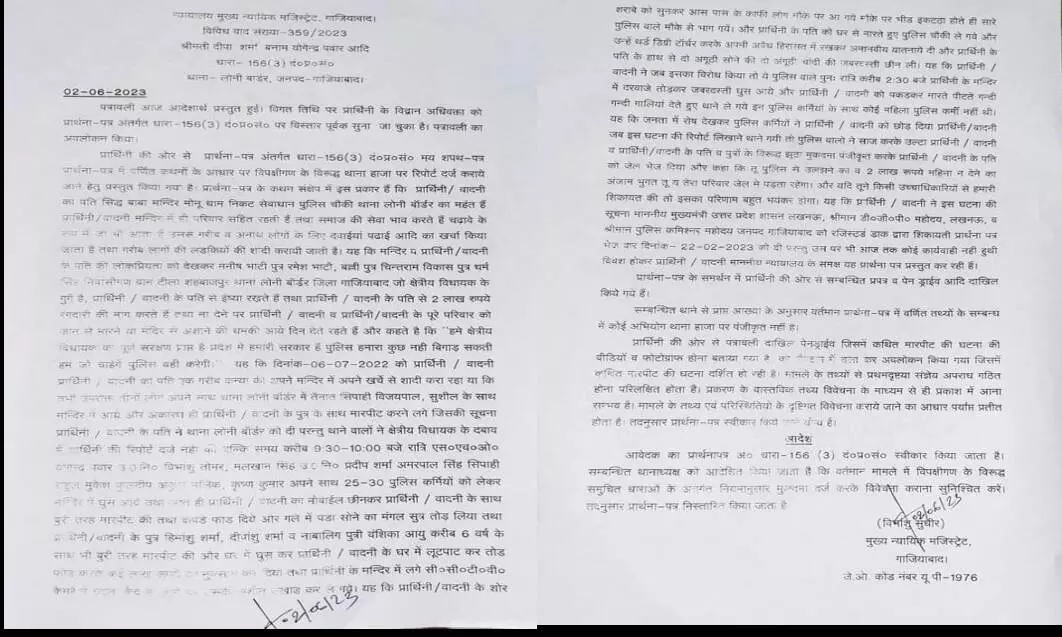 न्यायालय मुख्य न्यायिक मजिस्ट्रेट, गाजियाबाद।
विविध वाद संख्या-359/2023
श्रीमती दीपा शर्मा बनाम योगेन्द्र पवार आदि
धारा- 156(3) दं०प्र०सं०
थाना- लोनी बार्डर, जनपद-गाजियाबाद।
02-06-2023
पत्रावली आज आदेशार्थ प्रस्तुत हुई। विगत तिथि पर प्रार्थिनी के विद्वान अधिवक्ता को
प्रार्थना-पत्र अंतर्गत धारा-156(3) दं०प्र०सं० पर विस्तार पूर्वक सुना जा चुका है। पत्रावली का
अवलोकन किया।
प्रार्थिनी की ओर से प्रार्थना-पत्र अंतर्गत धारा-156(3) दं०प्र०सं० मय शपथ-पत्र
प्रार्थना-पत्र में वर्णित कथनों के आधार पर विपक्षीगण के विरूद्ध थाना हाजा पर रिपोर्ट दर्ज कराये
जाने हेतु प्रस्तुत किया गया है। प्रार्थना-पत्र के कथन संक्षेप में इस प्रकार हैं कि प्रार्थिनी/ वादनी
का पति सिद्ध बाबा मन्दिर मोनू धाम निकट सेवाधाम पुलिस चौकी थाना लोनी बॉर्डर का महंत हैं
प्रार्थिनी/वादनी मन्दिर में ही परिवार सहित रहती हैं तथा समाज की सेवा भाव करते हैं चढावे के
रूप में जो भी आता है उससे गरीब व अनाथ लोगों के लिए दवाईयां पढाई आदि का खर्चा किया
जाता है तथा गरीब लोगों की लडकियों की शादी करायी जाती है। यह कि मन्दिर व प्रार्थिनी/वादनी
के पति की लोकप्रियता को देखकर मनीष भाटी पुत्र रमेश भाटी, बल्ली पुत्र चिन्तराम विकास पुत्र धर्म
सिंह निवासीगण ग्राम टीला शहबाजपुर थाना लोनी बॉर्डर जिला गाजियाबाद जो क्षेत्रीय विधायक के
गुर्गे है, प्रार्थिनी / वादनी के पति से ईर्ष्या रखते हैं तथा प्रार्थिनी / वादनी के पति से 2 लाख रुपये
रंगदारी की मांग करते हैं तथा ना देने पर प्रार्थिनी / वादनी व प्रार्थिनी/वादनी के पूरे परिवार को
जान से मारने या मंदिर से भगाने की धमकी आये दिन देते रहते हैं और कहते है कि "हमे क्षेत्रीय
विधायक का पूर्ण संरक्षण प्राप्त है प्रदेश में हमारी सरकार हैं पुलिस हमारा कुछ नही बिगाड़ सकती
हम जो चाहेंगे पुलिस वही करेगी।" यह कि दिनांक-06-07-2022 को प्रार्थिनी / वादनी
प्रार्थिनी / वादनी का पति एक गरीब कन्या की अपने मन्दिर में अपने खर्चे से शादी करा रहा या कि
तभी उपरोक्त तीनों लोग अपने साथ थाना लोनी बॉर्डर में तैनात सिपाही विजयपाल, सुशील के साथ
मन्दिर में आये और अकारण ही प्रार्थिनी / वादनी के पुत्र के साथ मारपीट करने लगे जिसकी सूचना
प्रार्थिनी / वादनी के पति ने थाना लोनी बॉर्डर को दी परन्तु थाने वालों ने क्षेत्रीय विधायक के दबाव
में प्रार्थिनी की रिपोर्ट दर्ज नही की बल्कि समय करीब 9:30-10:00 बजे रात्रि एस०एच०ओ०
योगेन्द्र पवार उ०नि० विभांशु तोमर, मलखान सिंह उ०नि० प्रदीप शर्मा अमरपाल सिंह सिपाही
राहुल मुकेश कुलदीप अनुज मलिक, कृष्ण कुमार अपने साथ 25-30 पुलिस कर्मियों को लेकर
मन्दिर में घुस आये तथा आते ही प्रार्थिनी / वादनी का मोबाईल छीनकर प्रार्थिनी / वादनी के साथ
बुरी तरह मारपीट की तथा कपडे फाड दिये और गले में पडा सोने का मंगल सुत्र तोड़ लिया तथा
प्रार्थिनी/वादनी के पुत्र हिमांशु शर्मा, दीपांशु शर्मा व नाबालिग पुत्री वंशिका आयु करीब 6 वर्ष के
साथ भी बुरी तरह मारपीट की और घर में घुस कर प्रार्थिनी / वादनी के घर में लूटपाट कर तोड
फोड करके कई लाख रूपये का नुकसान कर दिया तथा प्रार्थिनी के मन्दिर में लगे सी०सी०टी०वी०
कैमरे उखाड कर ले गये। यह कि प्रार्थिनी/वादनी के शोर
02/06/23
शराबे को सुनकर आस पास के काफी लोग मौके पर आ गये मौके पर भीड इकटठा होते ही सारे
पुलिस वाले मौके से भाग गये। और प्रार्थिनी के पति को घर से मारते हुए पुलिस चौकी ले गये और
उन्हें थर्ड डिग्री टॉर्चर करके अपनी अवैध हिरासत में रखकर अमानवीय यातनाये दी और प्रार्थिनी के
पति के हाथ से दो अगूठी सोने की दो अंगूठी चांदी की जबरदस्ती छीन ली। यह कि प्रार्थिनी /
वादनी ने जब इसका विरोध किया तो ये पुलिस वाले पुनः रात्रि करीब 2:30 बजे प्रार्थिनी के मन्दिर
में दरवाजे तोड़कर जबरदस्ती घुस आये और प्रार्थिनी / वादनी को पकडकर मारते पीटते गन्दी
गन्दी गालियां देते हुए थाने ले गये इन पुलिस कर्मियों के साथ कोई महिला पुलिस कर्मी नहीं थी।
यह कि जनता में रोष देखकर पुलिस कर्मियों ने प्रार्थिनी / वादनी को छोड दिया प्रार्थिनी/वादनी
जब इस घटना की रिपोर्ट लिखाने थाने गयी तो पुलिस वालो ने साज करके उल्टा प्रार्थिनी / वादनी
व प्रार्थिनी/वादनी के पति व पुत्रों के विरूद्ध झूठा मुकदमा पंजीकृत करके प्रार्थिनी / वादनी के पति
को जेल भेज दिया और कहा कि तू पुलिस से उलझने का व 2 लाख रूपये महिना न देने का
अंजाम भुगत तू य तेरा परिवार जेल मे पड़ता रहेगा। और यदि तूने किसी उच्चाधिकारीयों से हमारी
शिकायत की तो इसका परिणाम बहुत भयंकर होगा। यह कि प्रार्थिनी / वादनी ने इस घटना की
सूचना माननीय मुख्यमंत्री उत्तर प्रदेश शासन लखनऊ, श्रीमान डी०जी०पी० महोदय, लखनऊ, व
श्रीमान पुलिस कमिश्नर महोदय जनपद गाजियाबाद को रजिस्टर्ड डाक द्वारा शिकायती प्रार्थना पत्र
भेज कर दिनांक- 22-02-2023 को दी परन्तु उन पर भी आज तक कोई कार्यवाही नही हुयी
विवश होकर प्रार्थिनी / वादनी माननीय न्यायालय के समक्ष यह प्रार्थना पत्र प्रस्तुत कर रही हैं।
प्रार्थना-पत्र के समर्थन में प्रार्थिनी की ओर से सम्बन्धित प्रपत्र व पेन ड्राईव आदि दाखिल
किये गये हैं।
सम्बन्धित थाने से प्राप्त आख्या के अनुसार वर्तमान प्रार्थना-पत्र में वर्णित तथ्यों के सम्बन्ध
में कोई अभियोग थाना हाजा पर पंजीकृत नहीं है।
प्रार्थिनी की ओर से पत्रावली दाखिल पेनड्राईव जिसमें कथित मारपीट की घटना की
वीडियों व फोटोग्राफ होना बताया गया है, का कर अवलोकन किया गया जिसमें
कथित मारपीट की घटना दर्शित हो रही है। मामले के तथ्यों से प्रथमदृष्टया संज्ञेय अपराध गठित
होना परिलक्षित होता है। प्रकरण के वास्तविक तथ्य विवेचना के माध्यम से ही प्रकाश में आना
सम्भव है। मामले के तथ्य एवं परिस्थितियो के दृष्टिगत विवेचना कराये जाने का आधार पर्याप्त प्रतीत
होता है। तदनुसार प्रार्थना-पत्र स्वीकार किये जाने योग्य है।
आदेश
आवेदक का प्रार्थनापत्र अं० धारा-156 (3) दं०प्र०सं० स्वीकार किया जाता है।
सम्बन्धित थानाध्यक्ष को आदेशित किया जाता है कि वर्तमान मामले में विपक्षीगण के विरूद्ध
समुचित धाराओं के अन्तर्गत नियमानुसार मुकदमा दर्ज करके विवेचना कराना सुनिश्चित करें।
तदनुसार प्रार्थना-पत्र निस्तारित किया जाता है
02/06/23
(विभांशु सुधीर)
मुख्य न्यायिक मजिस्ट्रेट,
गाजियाबाद।
जे.ओ. कोड नंबर यू पी-1976